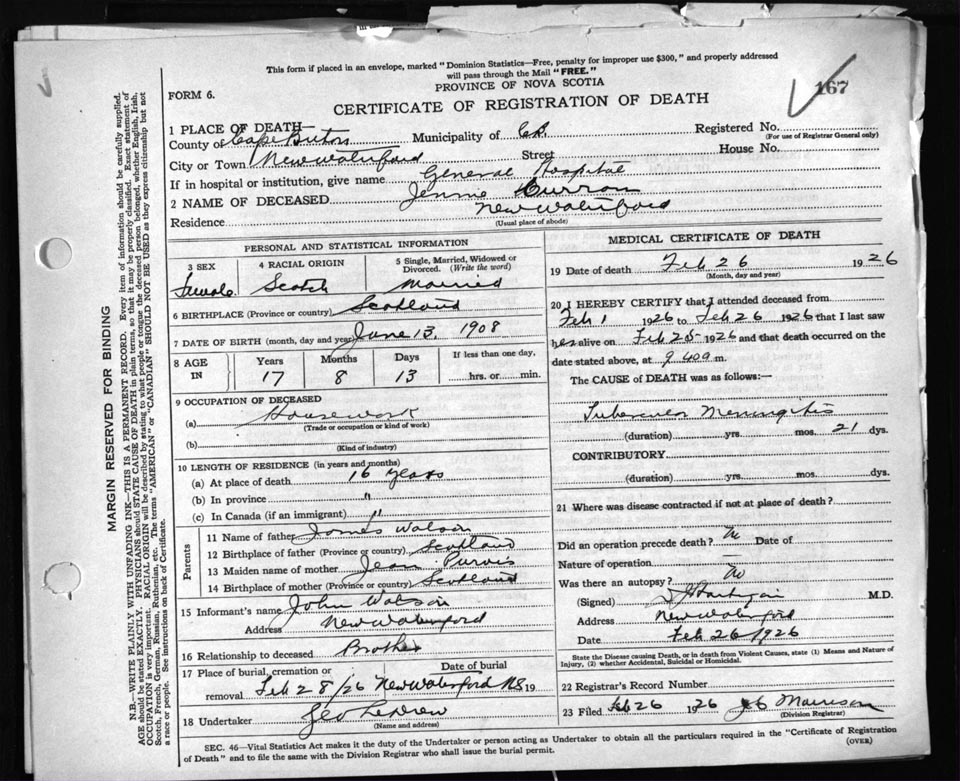 This form if placed in an envelope, marked "Dominion Statistics—Free, penalty for improper use $300," and properly addressed
will pass through the Mail "FREE."
PROVINCE OF NOVA SCOTIA
167
FORM 6.
CERTIFICATE OF REGISTRATION OF DEATH
1 PLACE OF DEATH—
County of Cape Breton Municipality of C.B. Registered No.
(For use of Registrar General only)
City or Town New Waterford Street House No.
If in hospital or institution, give name General Hospital
2 NAME OF DECEASED Jennie Curran
Residence New Waterford
(Usual place of abode)
PERSONAL AND STATISTICAL INFORMATION
3 SEX 4 RACIAL ORIGIN 5 Single, Married, Widowed or Divorced. (Write the word)
Female Scotch Married
6 BIRTHPLACE (Province or country) Scotland
7 DATE OF BIRTH (month, day and year) June 13, 1908
8 AGE IN Years Months Days If less than one day,
17 8 13 hrs. or min.
9 OCCUPATION OF DECEASED
(a) Housework
(Trade or occupation or kind of work)
(b)
(Kind of industry)
10 LENGTH OF RESIDENCE (in years and months)
(a) At place of death 16 years
(b) In province "
(c) In Canada (if an immigrant) "
Parents
11 Name of father James Watson
12 Birthplace of father (Province or country) Scotland
13 Maiden name of mother Jean Purvis
14 Birthplace of mother (Province or Country) Scotland
15 Informant's name John Watson
Address New Waterford
16 Relationship to deceased Brother
17 Place of burial, cremation or removal Date of burial
Feb 28/26 New Waterford NS 19
18 Undertaker Geo
(Name and address)
MEDICAL CERTIFICATE OF DEATH
19 Date of death Feb 26 1926
(Month, day and year)
20 I HEREBY CERTIFY that I attended deceased from
Feb 1 1926 to Feb 26 1926 that I last saw
her alive on Feb 25 1926 and that death occurred on the
date stated above, at 9.40 a m.
The CAUSE of DEATH was as follows:—
Tubercular Meningitis
(duration) yrs. mos. 21 dys.
CONTRIBUTORY
(duration) yrs. mos. dys.
21 Where was disease contracted if not at place of death?
Did an operation precede death? No Date of
Nature of operation
Was there an autopsy? No
(Signed) M.D.
Address New Waterford
Date Feb 26/1926
State the Disease causing Death, or in death from Violent Causes, state (1) Means and Nature of
Injury, (2) whether Accidental, Suicidal or Homicidal.
22 Registrar's Record Number
23 Filed Feb 26 1926
(Division Registrar)
SEC. 46—Vital Statistics Act makes it the duty of the Undertaker or person acting as Undertaker to obtain all the particulars required in the "Certificate of Registration
of Death" and to file the same with the Division Registrar who shall issue the burial permit. (OVER)
MARGIN RESERVED FOR BINDING
N.B.—WRITE PLAINLY WITH UNFADING INK—THIS IS A PERMANENT RECORD. Every item of information should be carefully supplied.
AGE should be stated EXACTLY. PHYSICIANS should STATE CAUSE OF DEATH in plain terms, so that it may be properly classified. Exact statement of
OCCUPATION is very important. RACIAL ORIGIN will be described by stating to what people or tongue the deceased person belonged, whether English, Irish,
Scotch, French, German, Russian, Ruthenian, etc. The terms "AMERICAN" or "CANADIAN" SHOULD NOT BE USED as they express citizenship but not
a race or people. See instructions on back of Certificate.